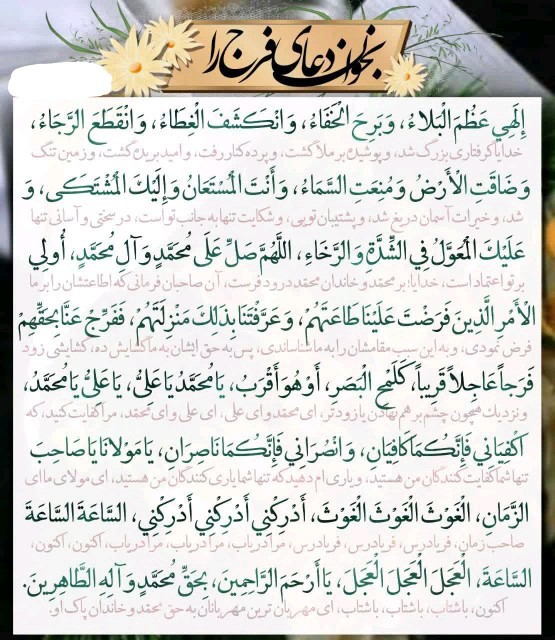 بخوان دعای فرج را
إِلَهِي عَظُمَ الْبَلاءُ، وَبَرِحَ الْخَفَاءُ، وَانْكَشَفَ الْغِطَاءُ، وَانْقَطَعَ الرَّجَاءُ،
خدایا گرفتاری بزرگ شد، و پوشیده بر ملا گشت، و پرده کنار رفت، و امید بریده گشت، و زمین تنگ
وَضَاقَتِ الْأَرْضُ وَمُنِعَتِ السَّمَاءُ، وَأَنْتَ الْمُسْتَعَانُ وَإِلَيْكَ الْمُشْتَكَى، وَ
شد، و خیرات آسمان دریغ شد، و پشتیبان تویی، و شکایت تنها به جانب تو است، در سختی و آسانی تنها
عَلَيْكَ الْمُعَوَّلُ فِي الشِّدَّةِ وَالرَّخَاءِ، اللَّهُمَّ صَلِّ عَلَى مُحَمَّدٍ وَآلِ مُحَمَّدٍ، أُولِي
بر تو اعتماد است، خدایا بر محمد و خاندان محمد درود فرست، آن صاحبان فرمانی که اطاعتشان را بر ما
الْأَمْرِ الَّذِينَ فَرَضْتَ عَلَيْنَا طَاعَتَهُمْ، وَعَرَّفْتَنَا بِذَلِكَ مَنْزِلَتَهُمْ، فَفَرِّجْ عَنَّا بِحَقِّهِمْ
فرض نمودی، و به این سبب مقامشان را به ما شناساندی، پس به حق ایشان به ما گشایش ده، گشایشی زود
فَرَجاً عَاجِلاً قَرِيباً، كَلَمْحِ الْبَصَرِ، أَوْ هُوَ أَقْرَبُ، يَا مُحَمَّدُ يَا عَلِيُّ، يَا عَلِيُّ يَا مُحَمَّدُ،
و نزدیک همچون چشم بر هم نهادن یا زودتر، ای محمد و ای علی، ای علی و ای محمد، مرا کفایت کنید، که
اكْفِيَانِي فَإِنَّكُمَا كَافِيَانِ، وَانْصُرَانِي فَإِنَّكُمَا نَاصِرَانِ، يَا مَوْلانَا يَا صَاحِبَ
تنها شما کفایت کنندگان من هستید، و یاری ام دهید که تنها شما یاری کنندگان من هستید، ای مولای ما ای
الزَّمَانِ، الْغَوْثَ الْغَوْثَ الْغَوْثَ، أَدْرِكْنِي أَدْرِكْنِي أَدْرِكْنِي، السَّاعَةَ السَّاعَةَ
صاحب زمان، فریادرس، فریادرس، فریادرس، مرا دریاب، مرا دریاب، مرا دریاب، اکنون، اکنون،
السَّاعَةَ، الْعَجَلَ الْعَجَلَ الْعَجَلَ، يَا أَرْحَمَ الرَّاحِمِينَ، بِحَقِّ مُحَمَّدٍ وَآلِهِ الطَّاهِرِينَ.
اکنون، باشتاب، باشتاب، باشتاب، ای مهربان ترین مهربانان به حق محمد و خاندان پاک او.